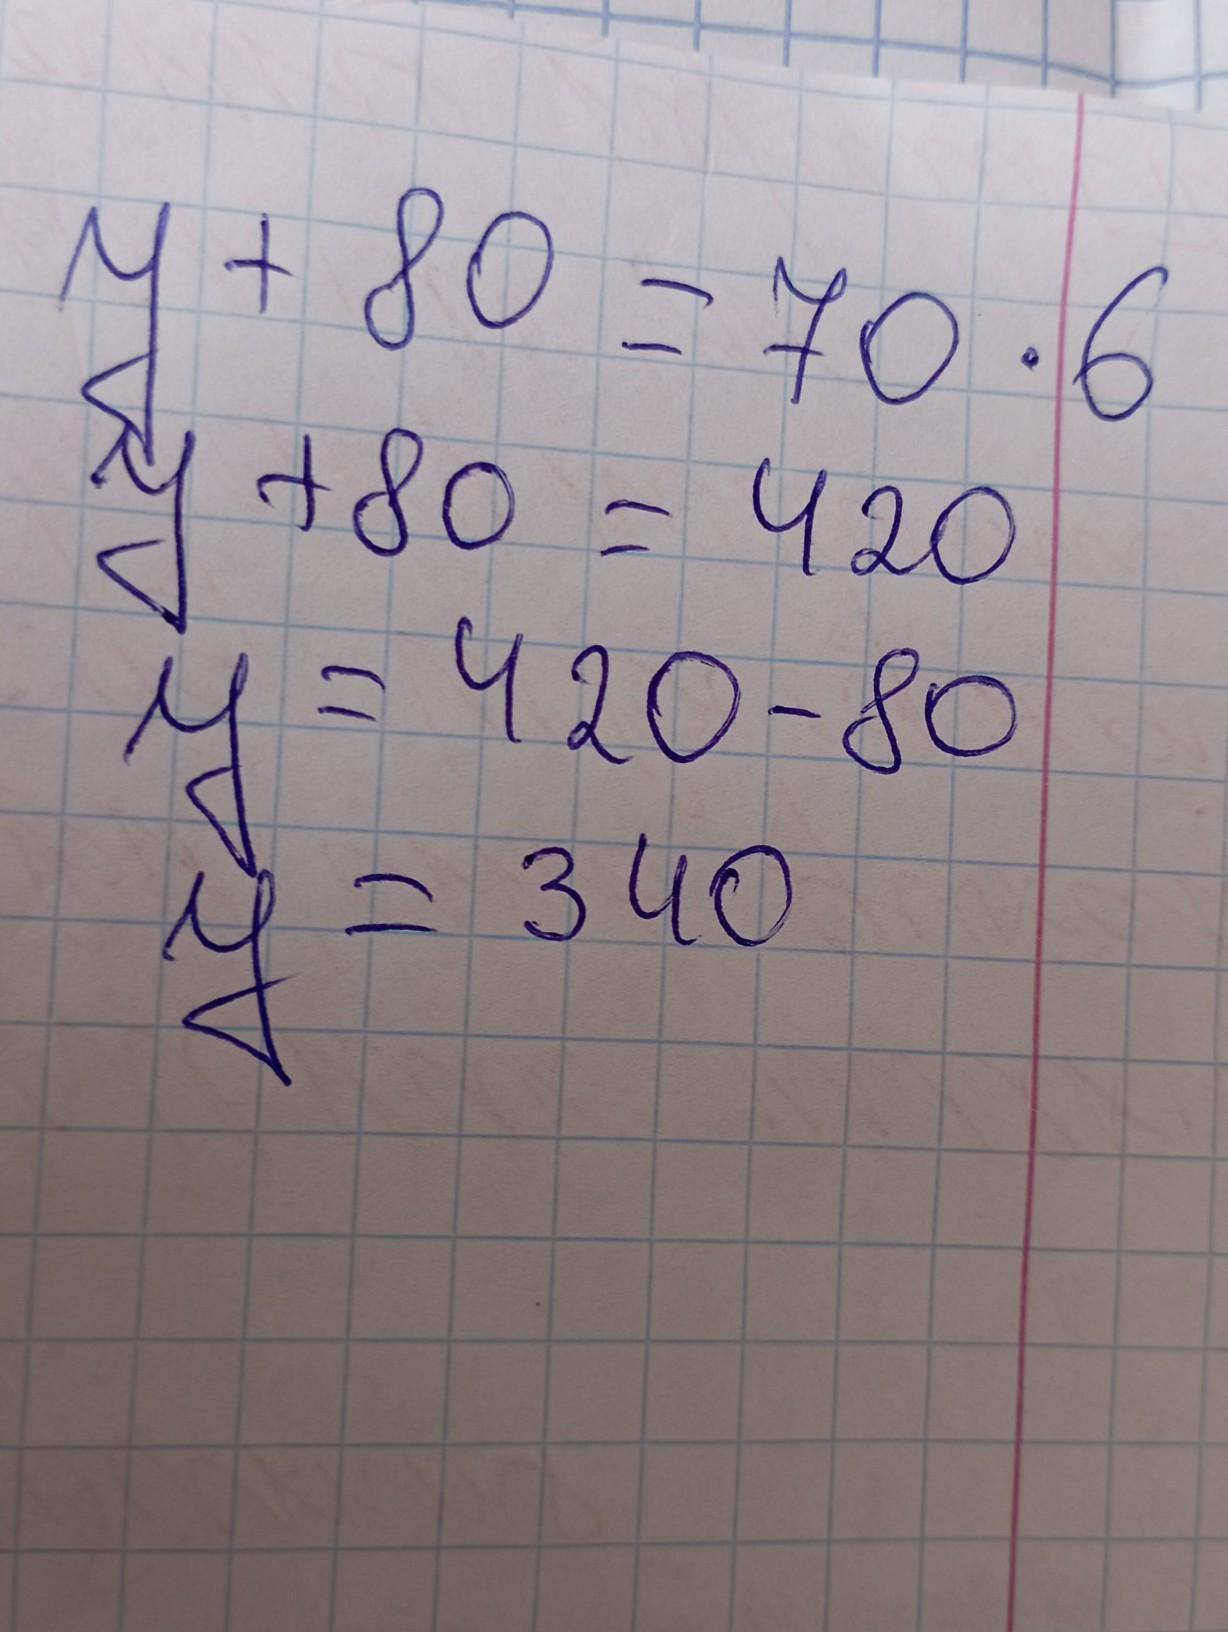 y + 80 = 70 · 6
y + 80 = 420
y = 420 - 80
y = 340